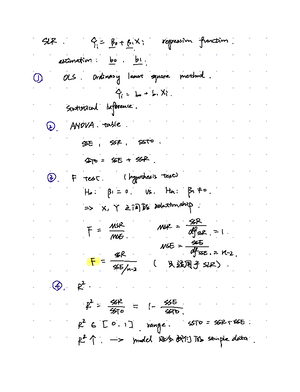 SLR. Ŷi = β0 + β1 Xi regression function.
estimation: b0 . b1.
① OLS. Ordinary least square method.
Ŷi = b0 + b1 Xi.
Statistical inference.
② ANOVA. table.
SSE , SSR , SSTO
SSTO = SSE + SSR.
③ F Test. (hypothesis test)
H0: β1 = 0. vs. Ha: β1 ≠ 0.
=> X, Y 之间的 relationship.
F = MSR / MSE MSR = SSR / dfSSR = 1.
MSE = SSE / dfSSE = n-2.
F = SSR / SSE/n-2 ( 只适用于 SLR ).
④ R².
R² = SSR / SSTO = 1 - SSE / SSTO.
R² ∈ [0, 1]. range. SSTO = SSR + SSE.
R² ↑. -> model sample data.